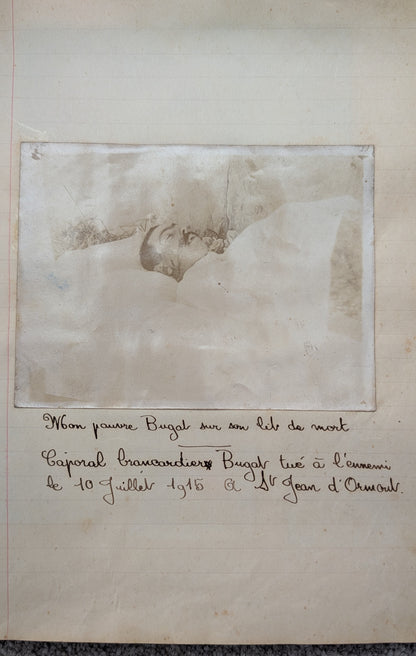 Mon pauvre Bugat sur son lit de mort
Caporal brancardier Bugat tué à l'ennemi
le 10 Juillet 1915 à St Jean d'Ormont.